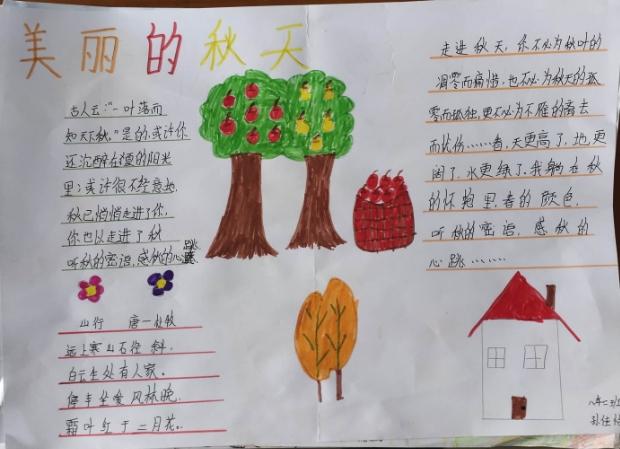 美丽的秋天
古人云:“一叶落而
知天下秋。”是的,或许你
还沉醉在夏的阳光
里;或许很不经意地,
秋已悄悄走进了你,
你也以走进了秋
听秋的密语,感秋的心跳
山行 唐一杜牧
远上寒山石径斜,
白云生处有人家。
停车坐爱枫林晚,
霜叶红于二月花。
走进秋天,你不必为秋叶的
凋零而痛惜,也不必为秋天的孤
零而孤独,更不必为不雁的离去
而忧伤……看,天更高了,地更
阔了,水更绿了,我躺在秋
的怀抱里,看的颜色,
听秋的密语,感秋的
心跳……
八年二班